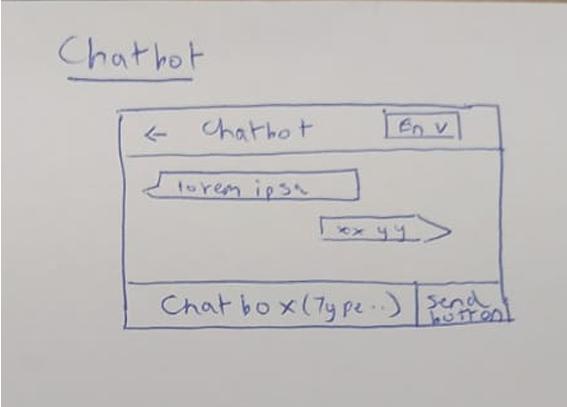 Chatbot
← Chatbot En v
lorem ipsa
xx yy
Chatbox (Type..) send
button